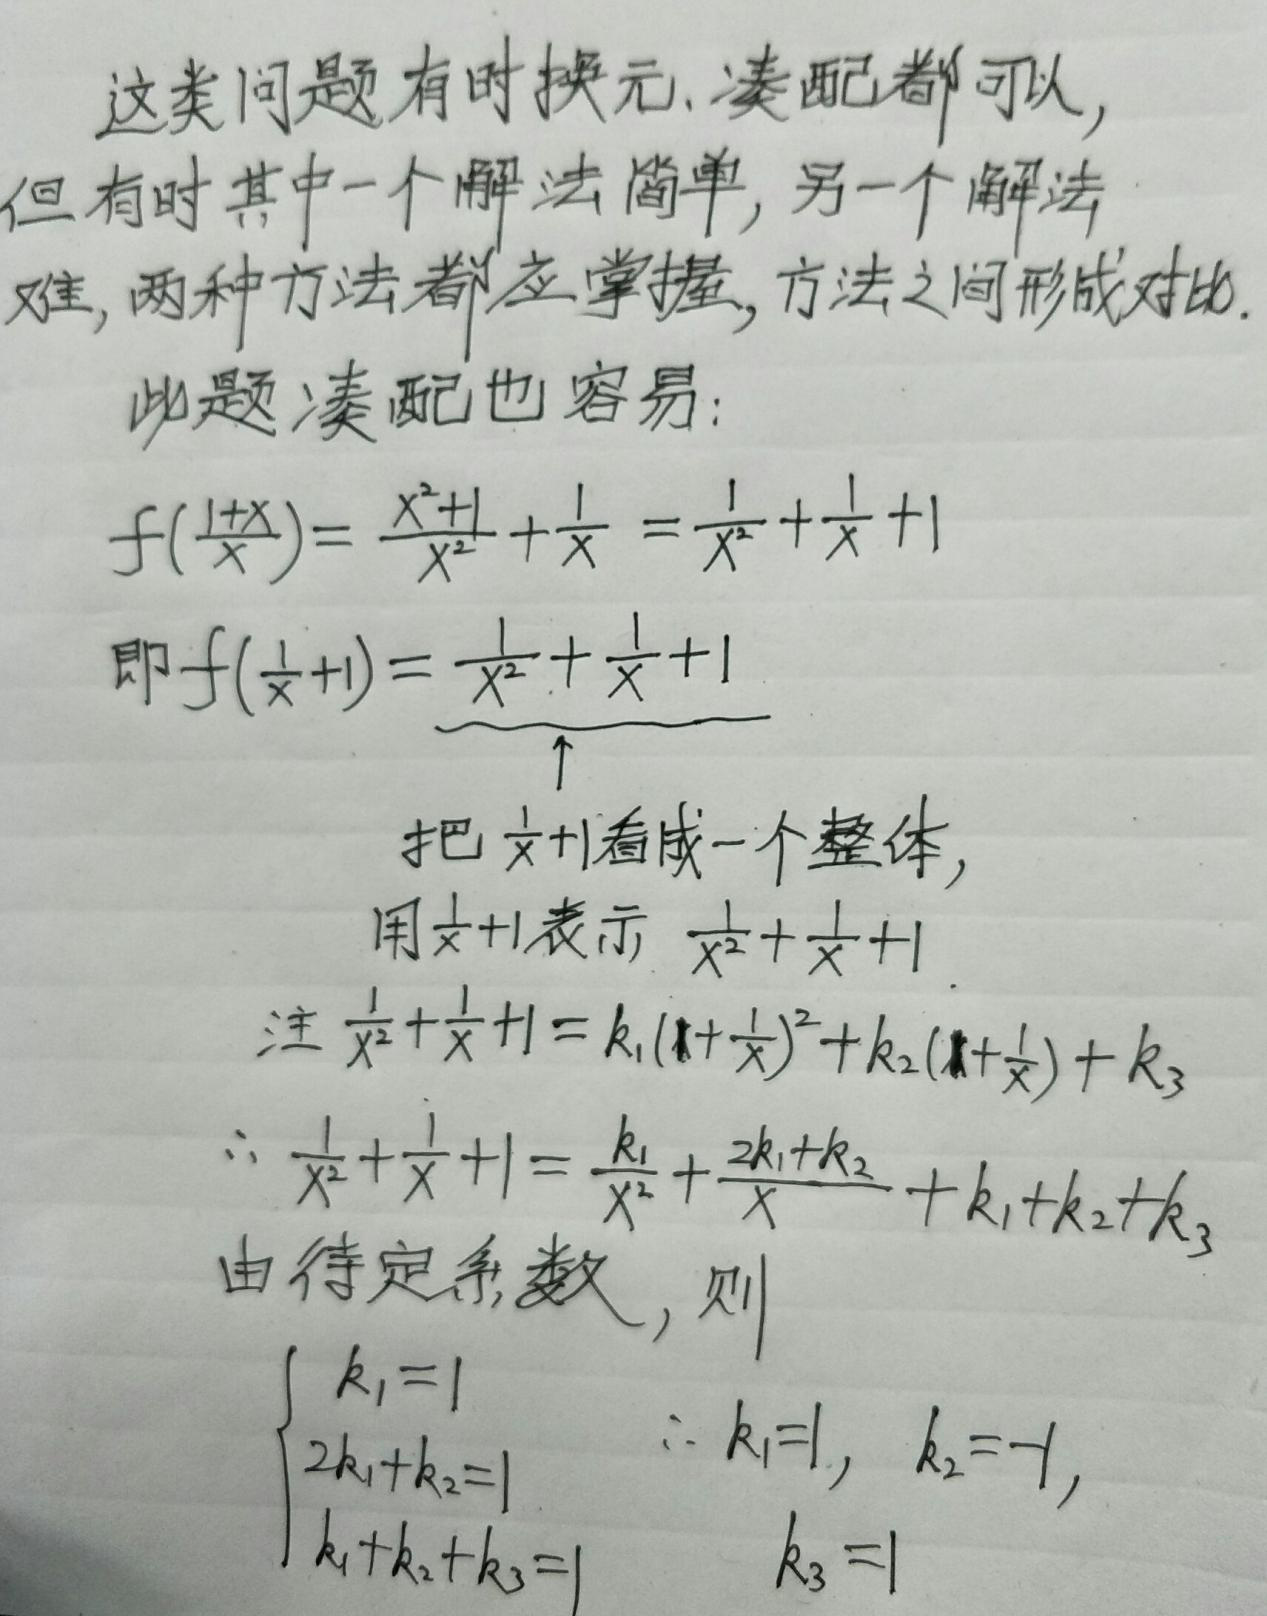 这类问题有时换元、凑配都可以,
但有时其中一个解法简单,另一个解法
难,两种方法都应掌握,方法之间形成对比.
此题凑配也容易:
f(\frac{1+x}{x})=\frac{x²+1}{x²}+\frac{1}{x}=\frac{1}{x²}+\frac{1}{x}+1
即f(\frac{1}{x}+1)=\frac{1}{x²}+\frac{1}{x}+1
↑
把\frac{1}{x}+1看成一个整体,
用\frac{1}{x}+1表示 \frac{1}{x²}+\frac{1}{x}+1
注 \frac{1}{x²}+\frac{1}{x}+1=k₁(1+\frac{1}{x})²+k₂(1+\frac{1}{x})+k₃
∴ \frac{1}{x²}+\frac{1}{x}+1=\frac{k₁}{x²}+\frac{2k₁+k₂}{x}+k₁+k₂+k₃
由待定系数,则
k₁=1
2k₁+k₂=1
k₁+k₂+k₃=1
∴ k₁=1, k₂=-1,
k₃=1